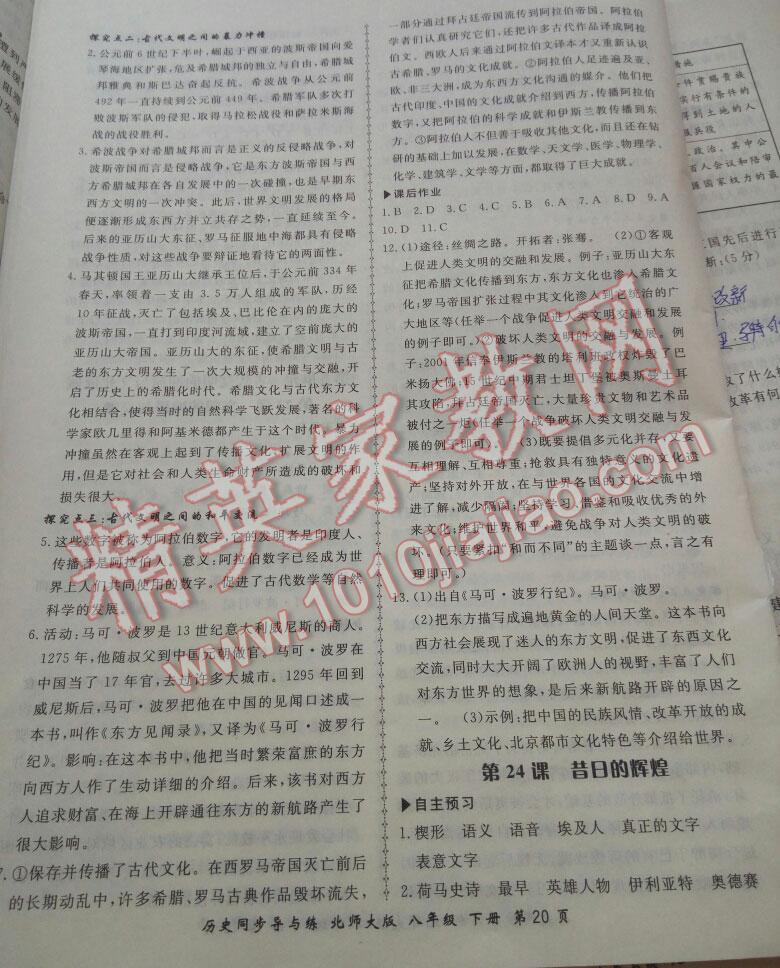 探究点二:古代文明之间的暴力冲撞
2.公元前6世纪下半叶,崛起于西亚的波斯帝国向爱
琴海地区扩张,危及希腊城邦的独立与自由,希腊城
邦雅典和斯巴达奋起反抗。希波战争从公元前
492年一直持续到公元前449年。希腊军队多次打
败波斯军队的侵犯,取得马拉松战役和萨拉米斯海
战的战役胜利。
3.希波战争对希腊城邦而言是正义的反侵略战争,对
波斯帝国而言是侵略战争,它是东方波斯帝国与西
方希腊城邦在各自发展中的一次碰撞,也是早期东
西方文明的一次冲突。此后,世界文明发展的格局
便逐渐形成东西方并立共存之势,一直延续至今。
后来的亚历山大东征、罗马征服地中海都具有侵略
战争性质,对这些战争要辩证地看待它的两面性。
4.马其顿国王亚历山大继承王位后,于公元前334年
春天,率领着一支由3.5万人组成的军队,历经
10年征战,灭亡了包括埃及、巴比伦在内的庞大的
波斯帝国,一直打到印度河流域,建立了空前庞大的
亚历山大帝国。亚历山大的东征,使希腊文明与古
老的东方文明发生了一次大规模的冲撞与交融,开
启了历史上的希腊化时代。希腊文化与古代东方文
化相结合,使得当时的自然科学飞跃发展,著名的科
学家欧几里得和阿基米德都产生于这个时代。暴力
冲撞虽然在客观上起到了传播文化、扩展文明的作
用,但是它对社会和人类生命财产所造成的破坏和
损失很大。
探究点三:古代文明之间的和平交流
5.这些数字被称为阿拉伯数字,它的发明者是印度人、
传播者是阿拉伯人。意义:阿拉伯数字已经成为世
界上人们共同使用的数字。促进了古代数学等自然
科学的发展。
6.活动:马可·波罗是13世纪意大利威尼斯的商人。
1275年,他随叔父到中国元朝做官。马可·波罗在
中国当了17年官,去过许多大城市。1295年回到
威尼斯后,马可·波罗把他在中国的见闻口述成一
本书,叫作《东方见闻录》,又译为《马可·波罗行
纪》。影响:在这本书中,他把当时繁荣富庶的东方
向西方人作了生动详细的介绍。后来,该书对西方
人追求财富、在海上开辟通往东方的新航路产生了
很大影响。
7.①保存并传播了古代文化。在西罗马帝国灭亡前后
的长期动乱中,许多希腊、罗马古典作品毁坏流失,
一部分通过拜占廷帝国流传到阿拉伯帝国。阿拉伯
学者们认真研究它们,还把许多古代作品译成阿拉
伯文。西欧人后来通过阿拉伯文译本才又重新认识
古希腊、罗马的文化成就。②阿拉伯人足迹遍及亚、
欧、非三大洲,成为东西方文化沟通的媒介。他们把
古代印度、中国的文化成就介绍到西方,传播阿拉伯
数字,又把阿拉伯的科学成就和伊斯兰教传播到东
方。③阿拉伯人不但善于吸收其他文化,而且还在钻
研的基础上加以发展,在数学、天文学、医学、物理学、
化学、建筑学、文学等方面,都取得了巨大成就。
▶课后作业
1.B 2.D 3.C 4.C 5.B 6.A 7.A 8.D 9.A
10.D 11.C
12.(1)途径:丝绸之路。开拓者:张骞。 (2)①客观
上促进人类文明的交融和发展。例子:亚历山大东
征把希腊文化传播到东方,东方文化也渗入希腊文
化;罗马帝国扩张过程中其文化渗入到它统治的广
大地区等(任举一个战争促进人类文明交融和发展
的例子即可。)②破坏人类文明的交融与发展。例
子:2001年信奉伊斯兰教的塔利班政权炸毁了巴
米扬大佛;15世纪中期君士坦丁堡被奥斯曼土耳
其攻陷,拜占廷帝国灭亡,大量珍贵文物和艺术品
被付之一炬(任举一个战争破坏人类文明交融与发
展的例子即可)。 (3)既要提倡多元化并存,又要
互相理解、互相尊重;抢救具有独特意义的文化遗
产;坚持对外开放,在与世界各国的文化交流中增
进了解,减少隔阂;坚持学习、借鉴和吸收优秀的外
来文化;维护世界和平,避免战争对人类文明的破
坏。(只要紧扣"和而不同"的主题谈一点,言之有
理即可。)
13.(1)出自《马可·波罗行纪》。马可·波罗。
(2)把东方描写成遍地黄金的人间天堂。这本书向
西方社会展现了迷人的东方文明,促进了东西文化
交流,同时大大开阔了欧洲人的视野,丰富了人们
对东方世界的想象,是后来新航路开辟的原因之
一。 (3)示例:把中国的民族风情、改革开放的成
就、乡土文化、北京都市文化特色等介绍给世界。
第24课 昔日的辉煌
▶自主预习
1.楔形 语义 语音 埃及人 真正的文字
表意文字
2.荷马史诗 最早 英雄人物 伊利亚特 奥德赛
历史同步导与练 北师大版 八年级 下册 第20页
精英家教网
www.1010jiajiao.com
措施
件有赐贵族
实行有条件的
得到土地的人
服兵役
政治,其中公
百人会议和陪审
握国家权力的最
国先后进行
析:(5分)
改新
取了什么
改革有何